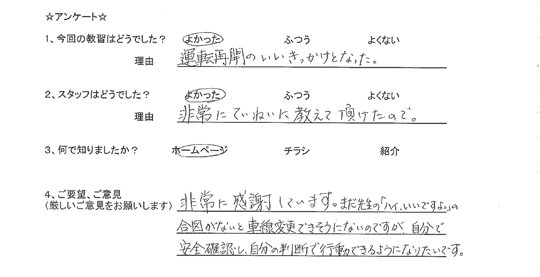 ☆アンケート☆
1、今回の教習はどうでした？ よかった ふつう よくない
理由 運転再開のいいきっかけとなった。
2、スタッフはどうでした？ よかった ふつう よくない
理由 非常にていねいに教えて頂けたので。
3、何で知りましたか？ ホームページ チラシ 紹介
4、ご要望、ご意見
(厳しいご意見をお願いします)
非常に感謝しています。まだ先生の「ハイ、いいですよ。」の
合図がないと車線変更できそうにないのですが、自分で
安全確認し、自分の判断で行動できるようになりたいです。